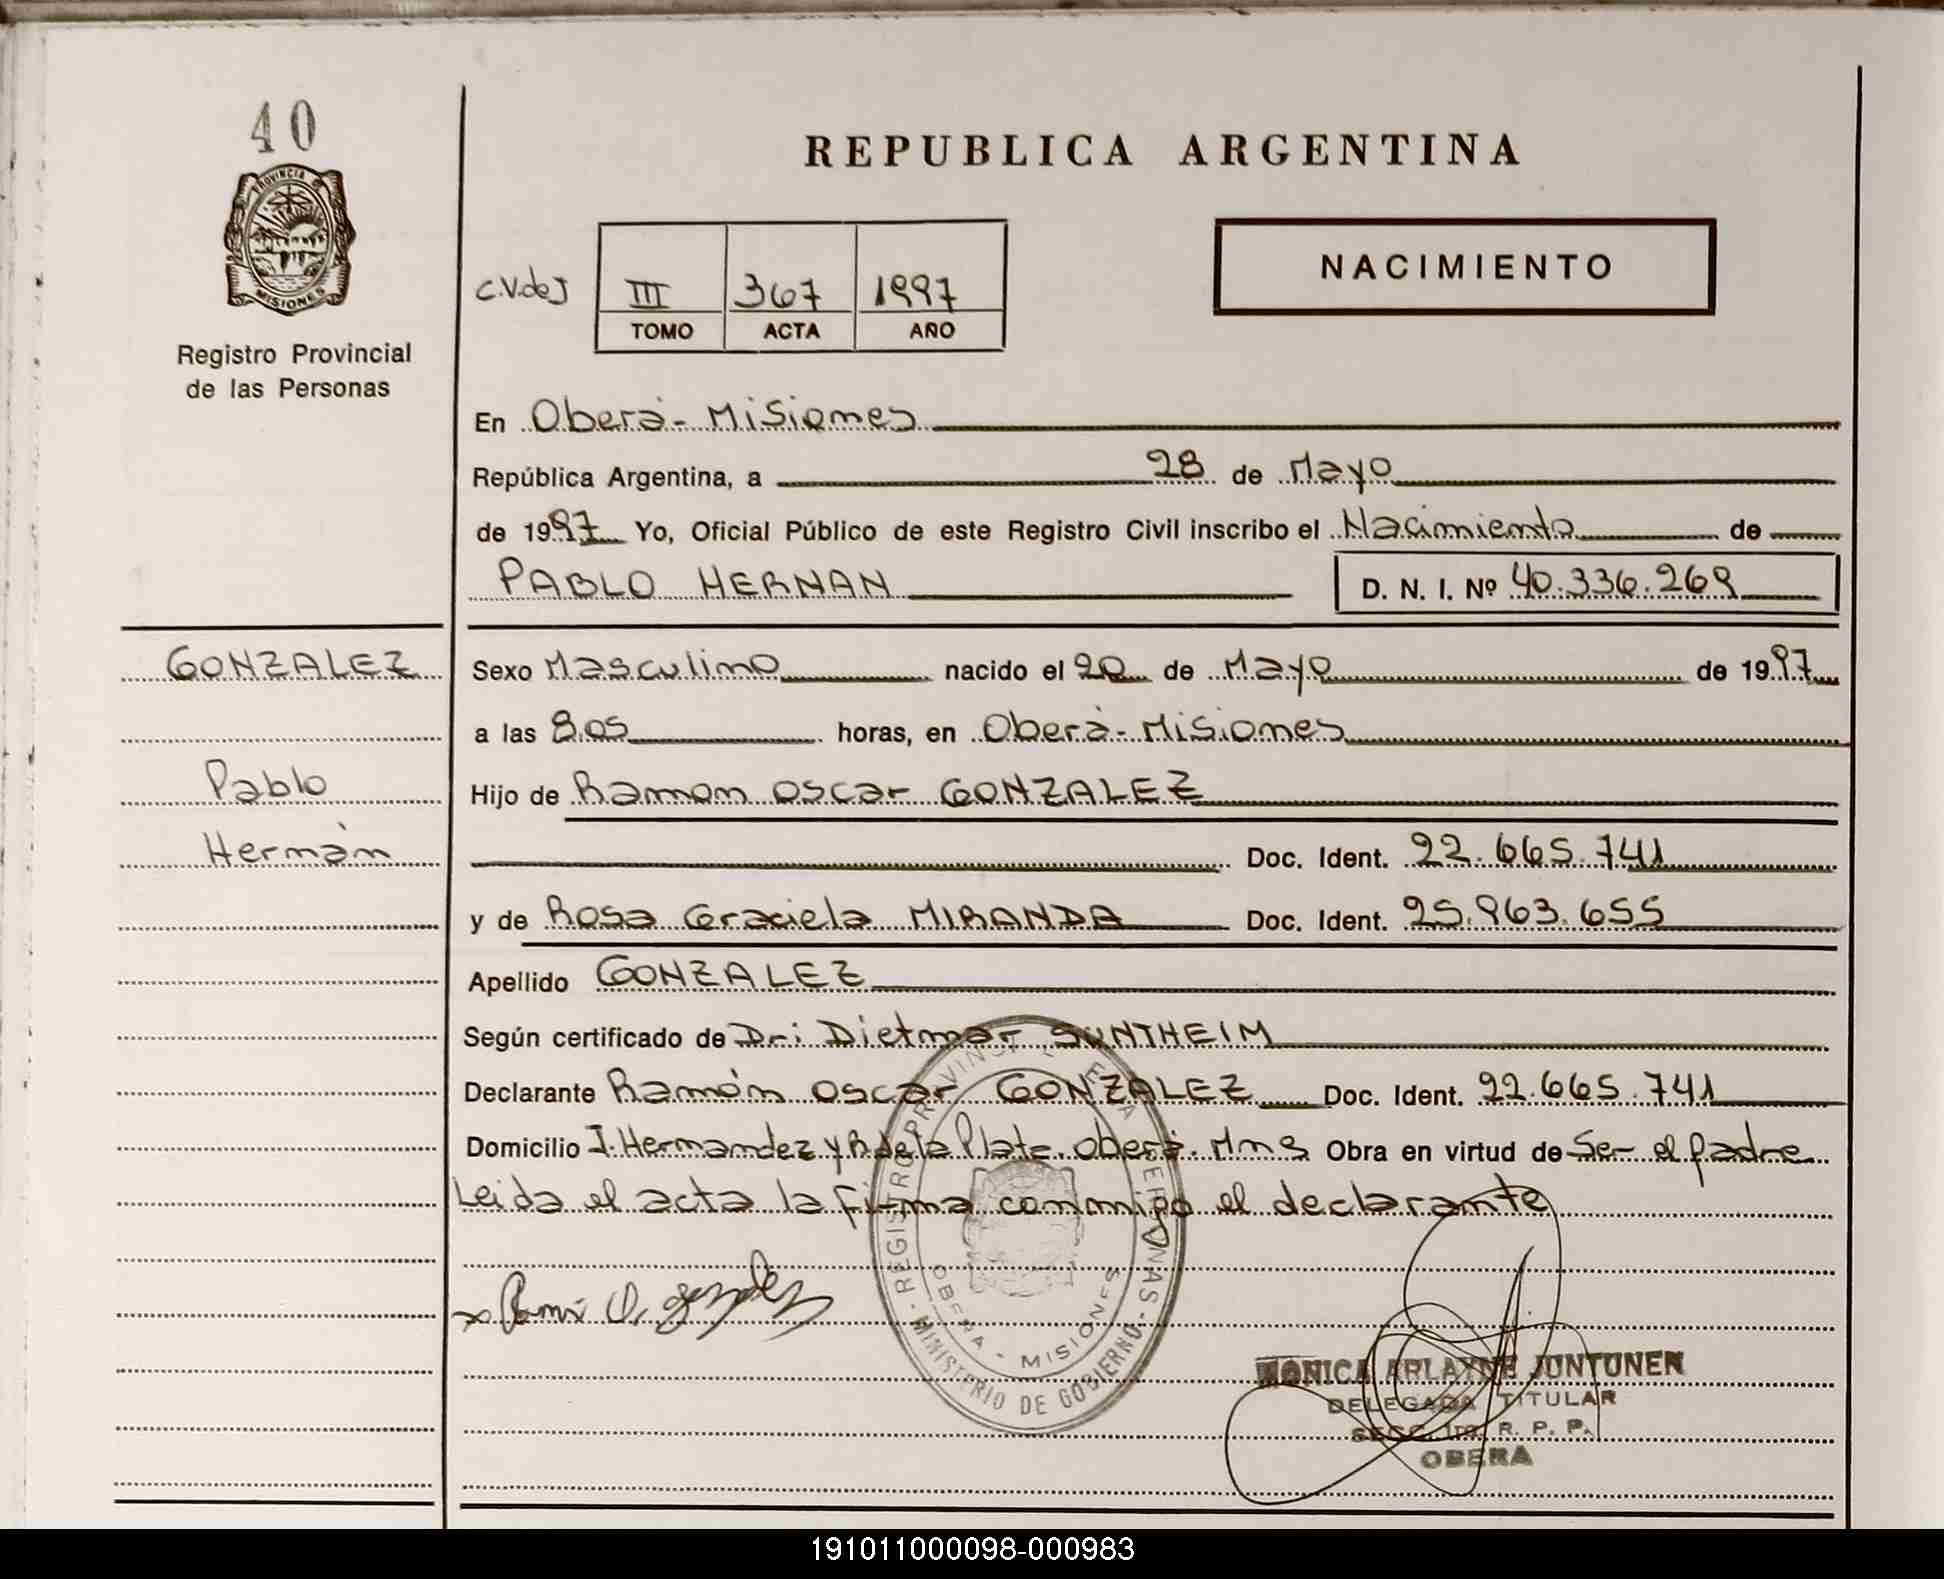 40
PROVINCIA DE
MISIONES
Registro Provincial
de las Personas
REPUBLICA ARGENTINA
NACIMIENTO
C.V.deJ
III 367 1997
TOMO ACTA AÑO
En Oberá - Misiones
República Argentina, a 28 de Mayo
de 1997 Yo, Oficial Público de este Registro Civil inscribo el Nacimiento de
PABLO HERNAN D. N. I. Nº 40.336.269
GONZALEZ
Pablo
Hernán
Sexo Masculino nacido el 20 de Mayo de 1997
a las 8.05 horas, en Oberá - Misiones
Hijo de Ramon Oscar GONZALEZ
Doc. Ident. 22.665.741
y de Rosa Graciela MIRANDA Doc. Ident. 25.963.655
Apellido GONZALEZ
Según certificado de Dr: Dietmar SUNTHEIM
Declarante Ramón Oscar GONZALEZ Doc. Ident. 22.665.741
Domicilio J. Hernandez y R. de la Plata. Oberá. Mns Obra en virtud de Ser el padre
Leida el acta la firma conmigo el declarante
REGISTRO PROVINCIAL DE LAS PERSONAS - MINISTERIO DE GOBIERNO -
OBERA - MISIONES
MONICA ARLAYNE JUNTUNEN
DELEGADA TITULAR
SECC. 1ra. R. P. P.
OBERA
191011000098-000983